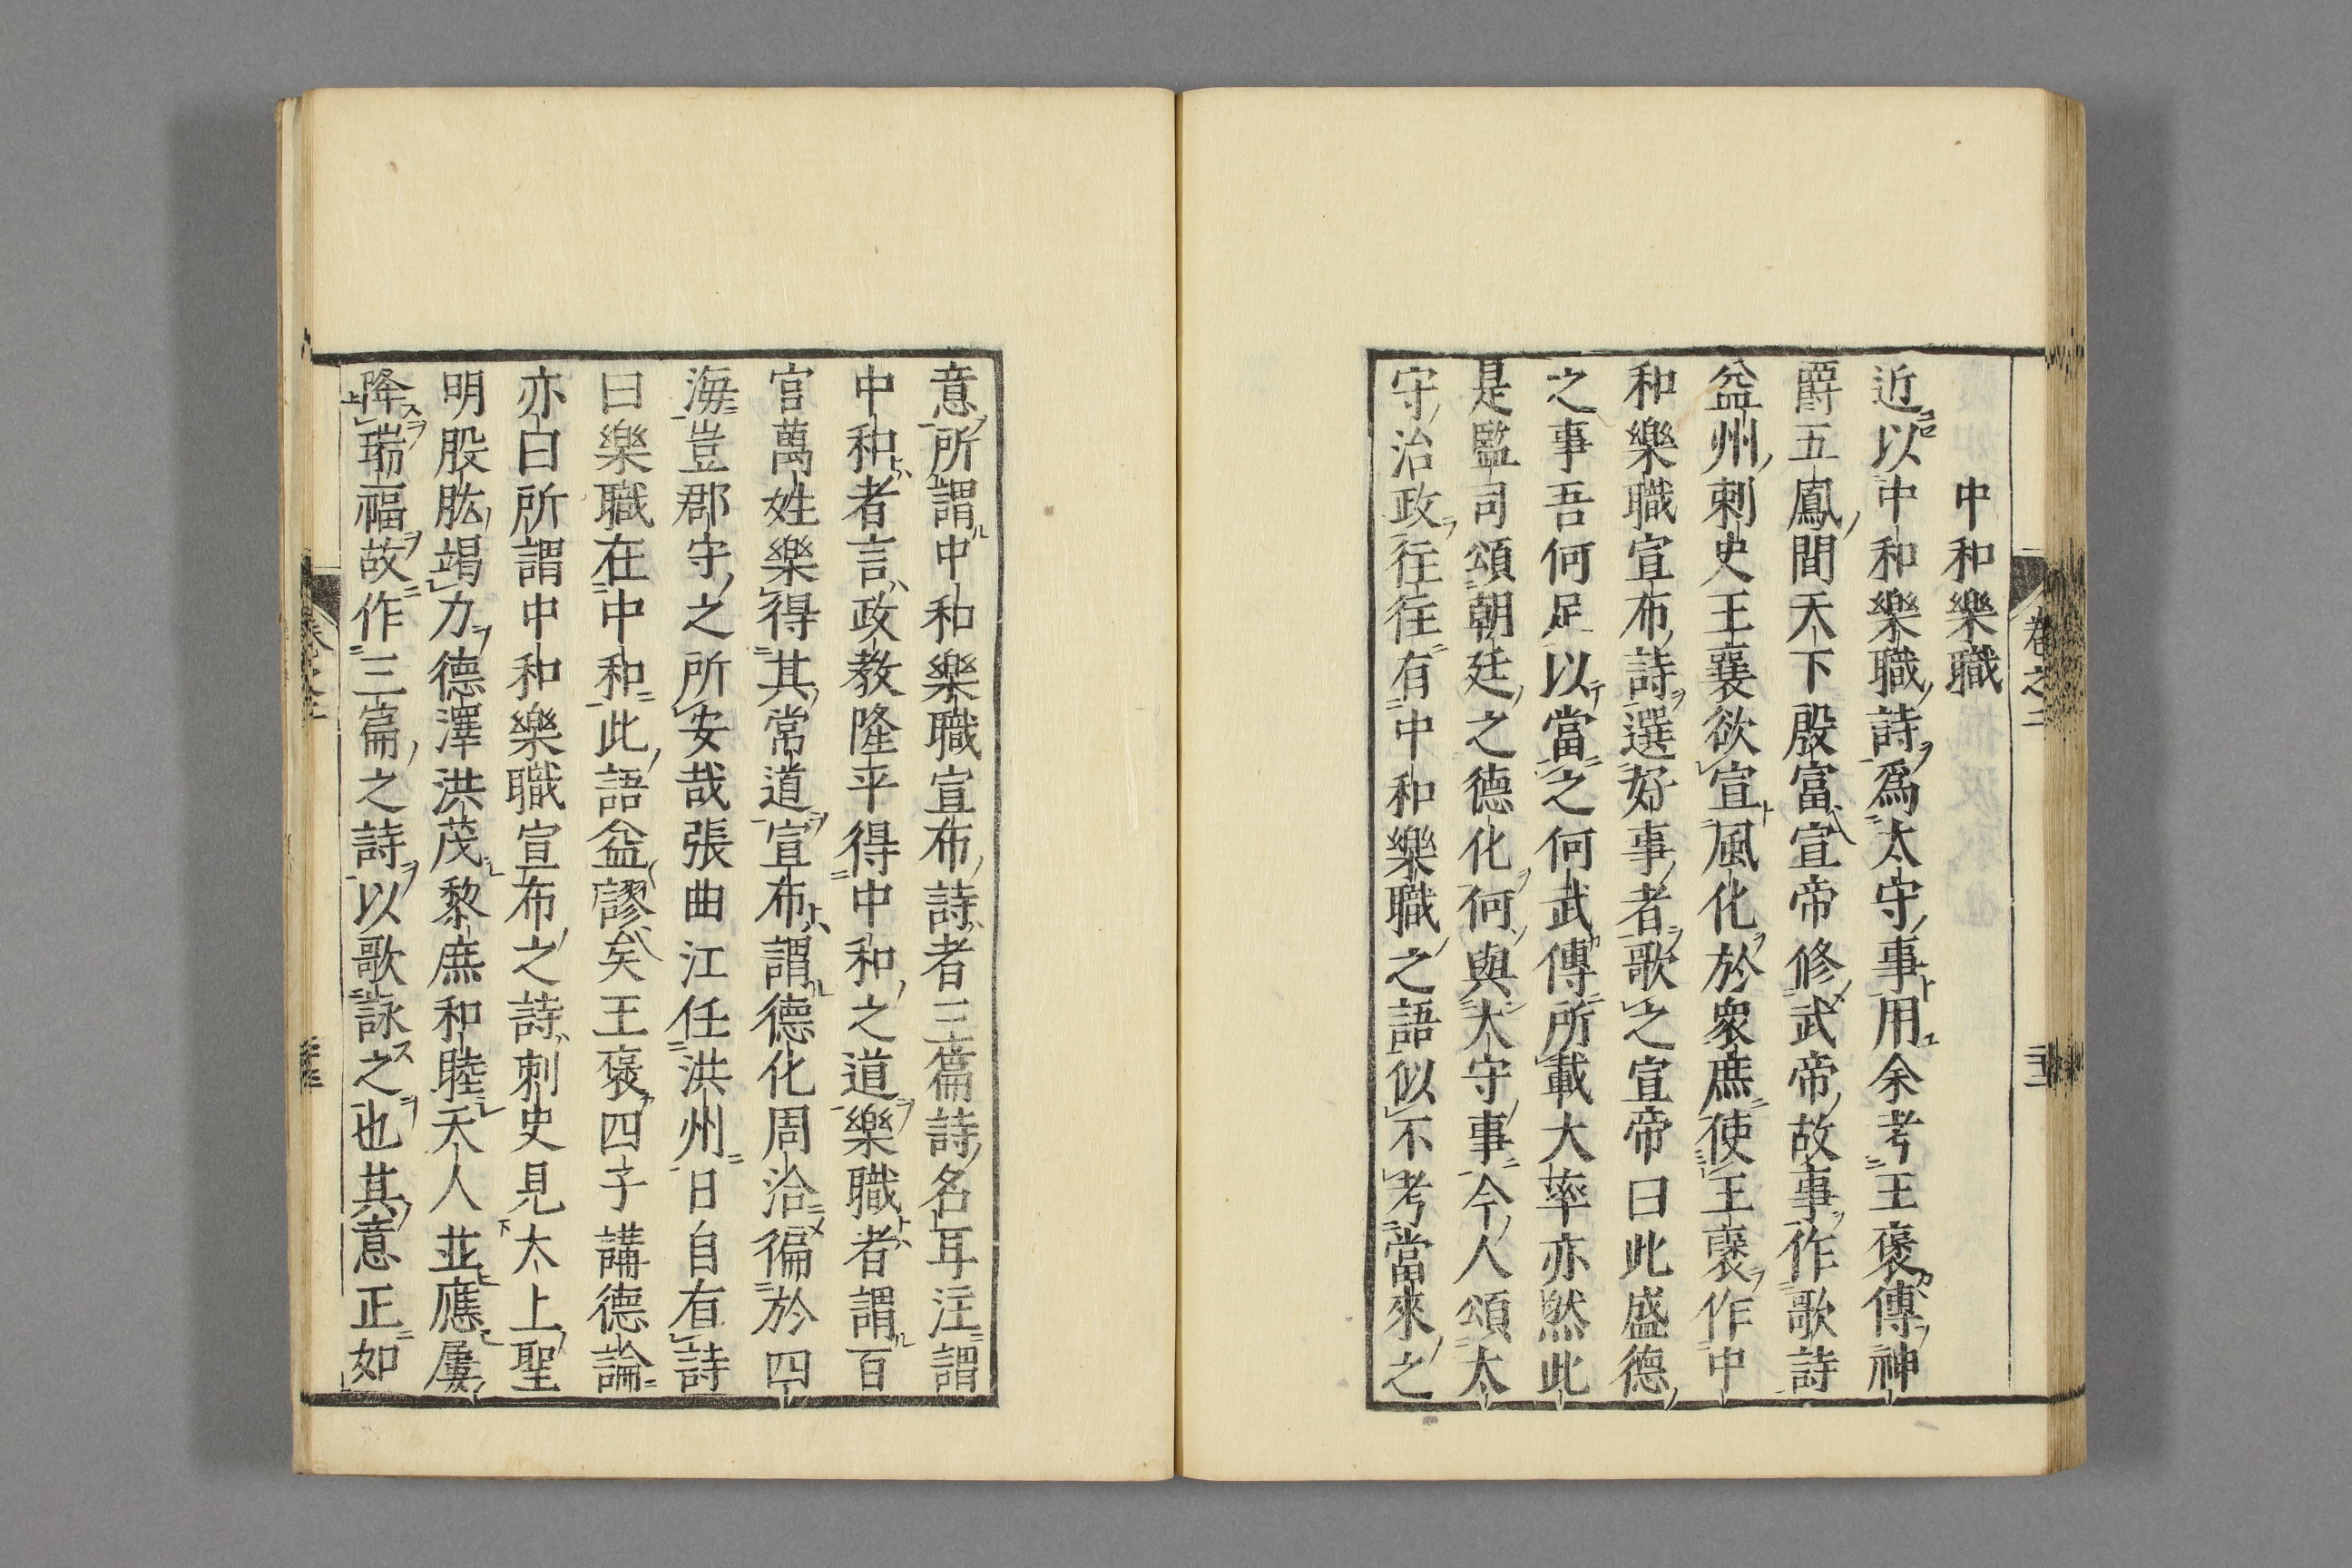 中和樂職
近以中和樂職詩爲太守事用余考王褒傳神
爵五鳳間天下殷富宣帝修武帝故事作歌詩
益州刺史王襄欲宣風化於衆庶使王褒作中
和樂職宣布詩選好事者歌之宣帝曰此盛德
之事吾何足以當之何武傳所載大率亦然此
是監司頌朝廷之德化何與太守事今人頌太
守治政往往有中和樂職之語似不考當來之
意所謂中和樂職宣布詩者三篇詩名耳注謂
中和者言政教隆平得中和之道樂職者謂百
官萬姓樂得其常道宣布謂德化周洽徧於四
海豈郡守之所安哉張曲江任洪州日自有詩
曰樂職在中和此語益謬矣王褒四子講德論
亦曰所謂中和樂職宣布之詩刺史見太上聖
明股肱竭力德澤洪茂黎庶和睦天人並應屢
降瑞福故作三篇之詩以歌詠之也其意正如
卷之二